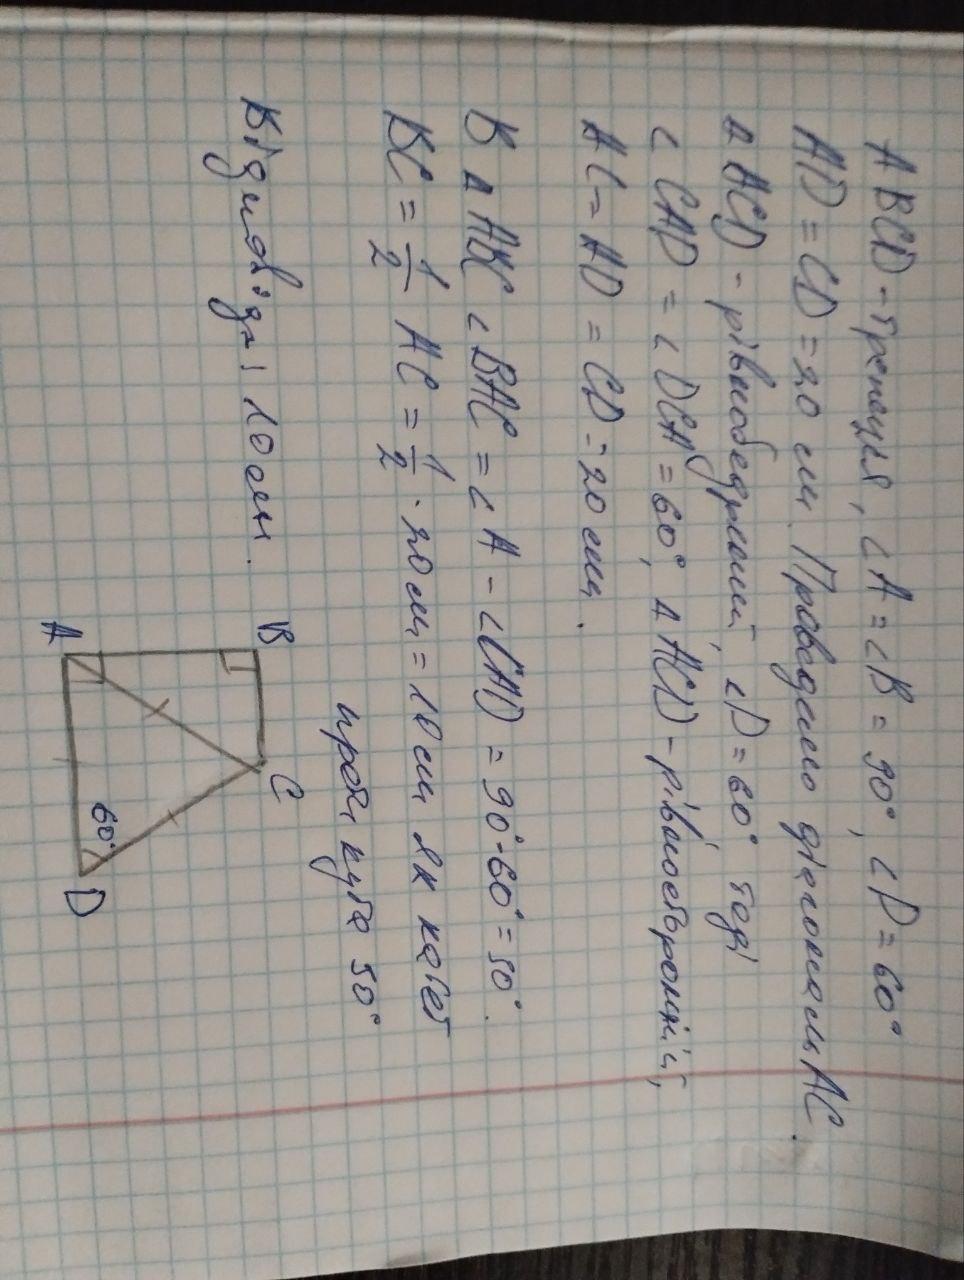 ABCD - трапеція, ∠A = ∠B = 90°, ∠D = 60°
AD = CD = 20 см. Проведемо діагональ AC.
△ ACD - рівнобедрений, ∠D = 60°, тоді
∠ CAD = ∠ DCA = 60°, △ ACD - рівносторонній,
AC = AD = CD = 20 см.
В △ ABC ∠BAC = ∠A - ∠CAD = 90° - 60° = 30°.
BC = 1/2 AC = 1/2 · 20 см = 10 см як катет
проти кута 30°
Відповідь: 10 см.
B
C
A
60°
D